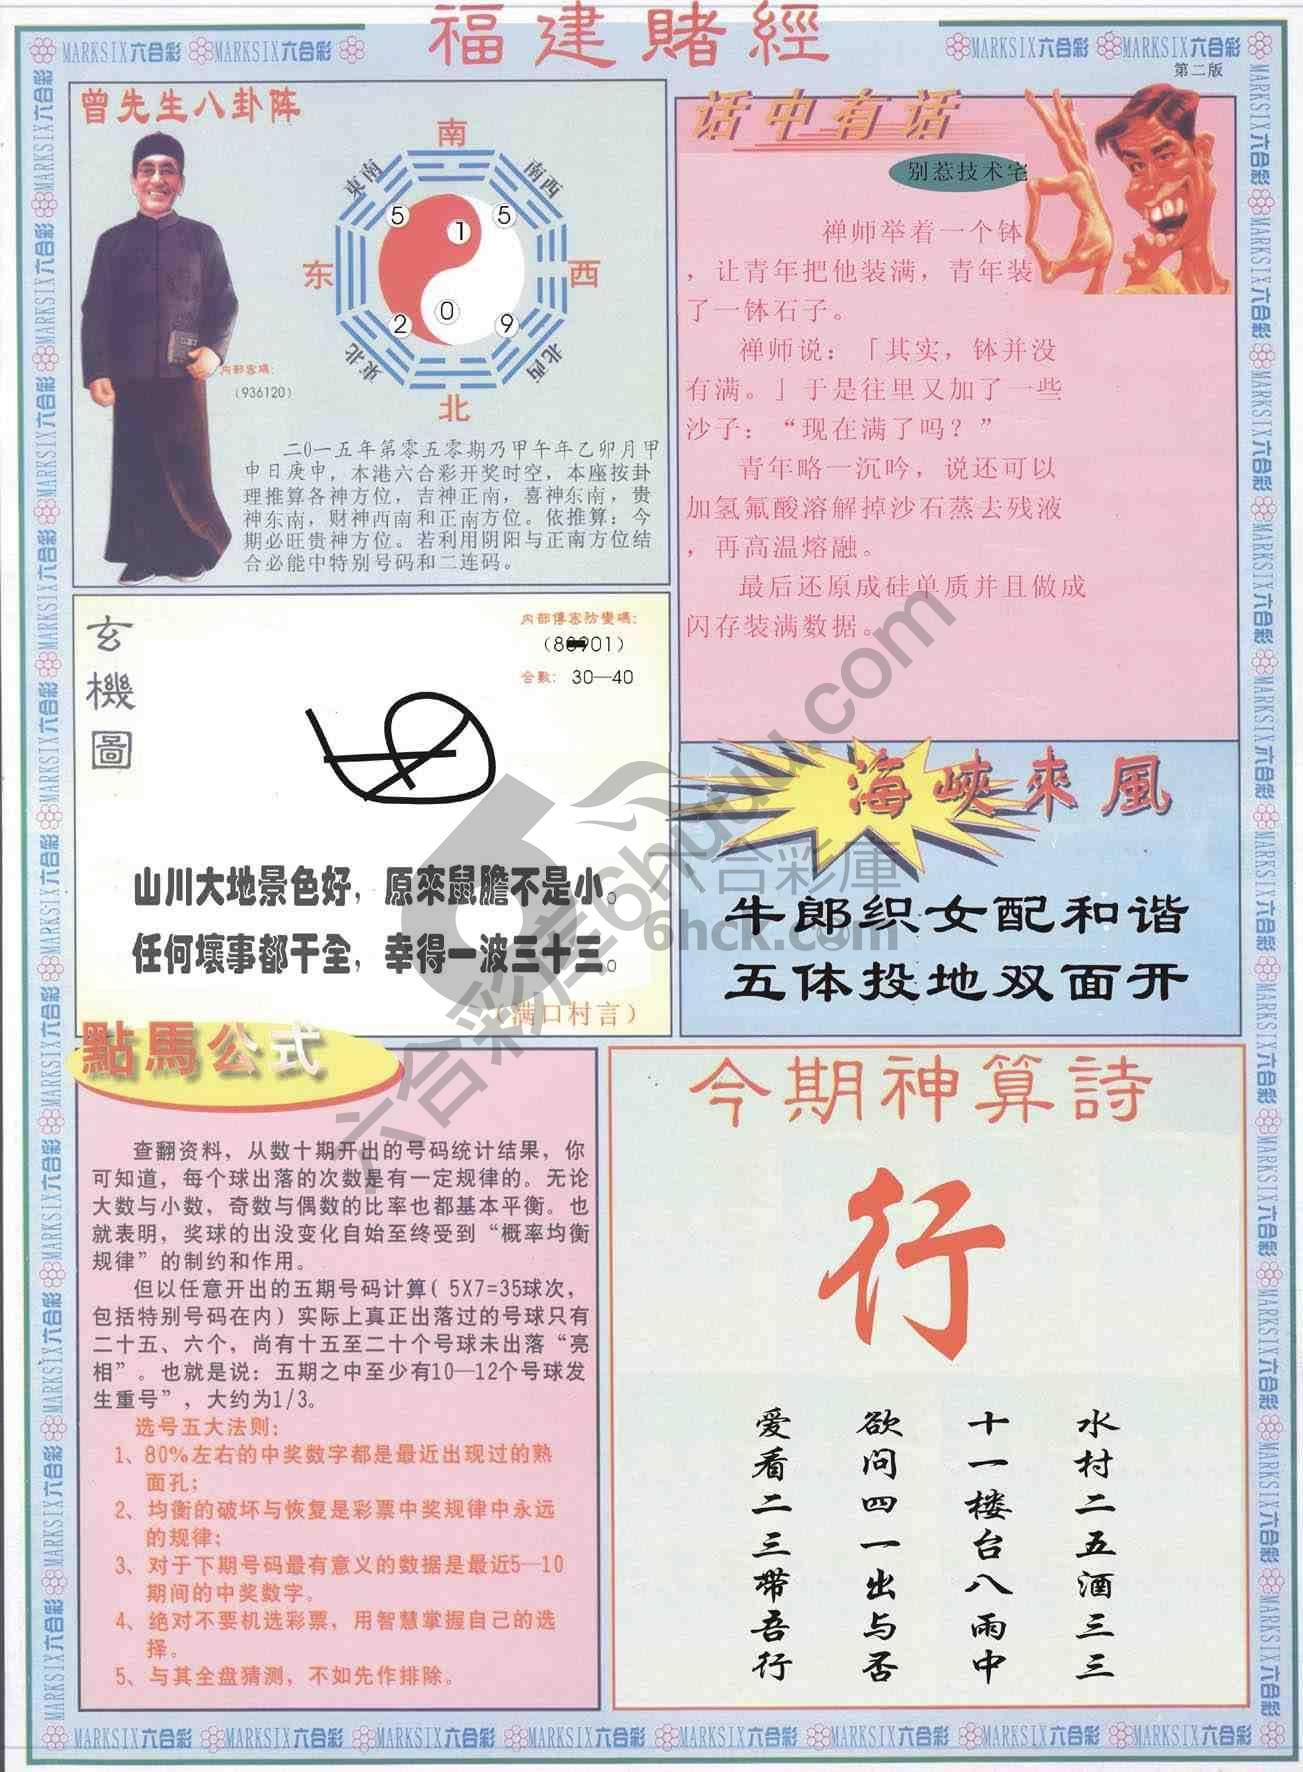 福建賭經
MARKSIX六合彩 MARKSIX六合彩
MARKSIX六合彩 MARKSIX六合彩
第二版
曾先生八卦阵
南
東南
南西
5
1
5
东
西
2
0
9
東北
北西
北
内部密碼:
(936120)
二0一五年第零五零期乃甲午年乙卯月甲
申日庚申，本港六合彩开奖时空，本座按卦
理推算各神方位，吉神正南，喜神东南，贵
神东南，财神西南和正南方位。依推算：今
期必旺贵神方位。若利用阴阳与正南方位结
合必能中特别号码和二连码。
话中有话
别惹技术宅
禅师举着一个钵
，让青年把他装满，青年装
了一钵石子。
禅师说：「其实，钵并没
有满。」于是往里又加了一些
沙子：“现在满了吗？”
青年略一沉吟，说还可以
加氢氟酸溶解掉沙石蒸去残液
，再高温熔融。
最后还原成硅单质并且做成
闪存装满数据。
玄機圖
内部傳密防變碼:
合數: 30—40
山川大地景色好，原來鼠膽不是小。
任何壞事都干全，幸得一波三十三。
（满口村言）
海峽來風
牛郎织女配和谐
五体投地双面开
六合彩庫
6hck.com
六合彩库6huuu.com
點馬公式
查翻资料，从数十期开出的号码统计结果，你
可知道，每个球出落的次数是有一定规律的。无论
大数与小数，奇数与偶数的比率也都基本平衡。也
就表明，奖球的出没变化自始至终受到“概率均衡
规律”的制约和作用。
但以任意开出的五期号码计算( 5X7=35球次，
包括特别号码在内）实际上真正出落过的号球只有
二十五、六个，尚有十五至二十个号球未出落“亮
相”。也就是说：五期之中至少有10—12个号球发
生重号”，大约为1/3。
选号五大法则：
1、80%左右的中奖数字都是最近出现过的熟
面孔；
2、均衡的破坏与恢复是彩票中奖规律中永远
的规律；
3、对于下期号码最有意义的数据是最近5—10
期间的中奖数字。
4、绝对不要机选彩票，用智慧掌握自己的选
择。
5、与其全盘猜测，不如先作排除。
今期神算詩
行
水村二五酒三三
十一楼台八雨中
欲问四一出与否
爱看二三带吾行